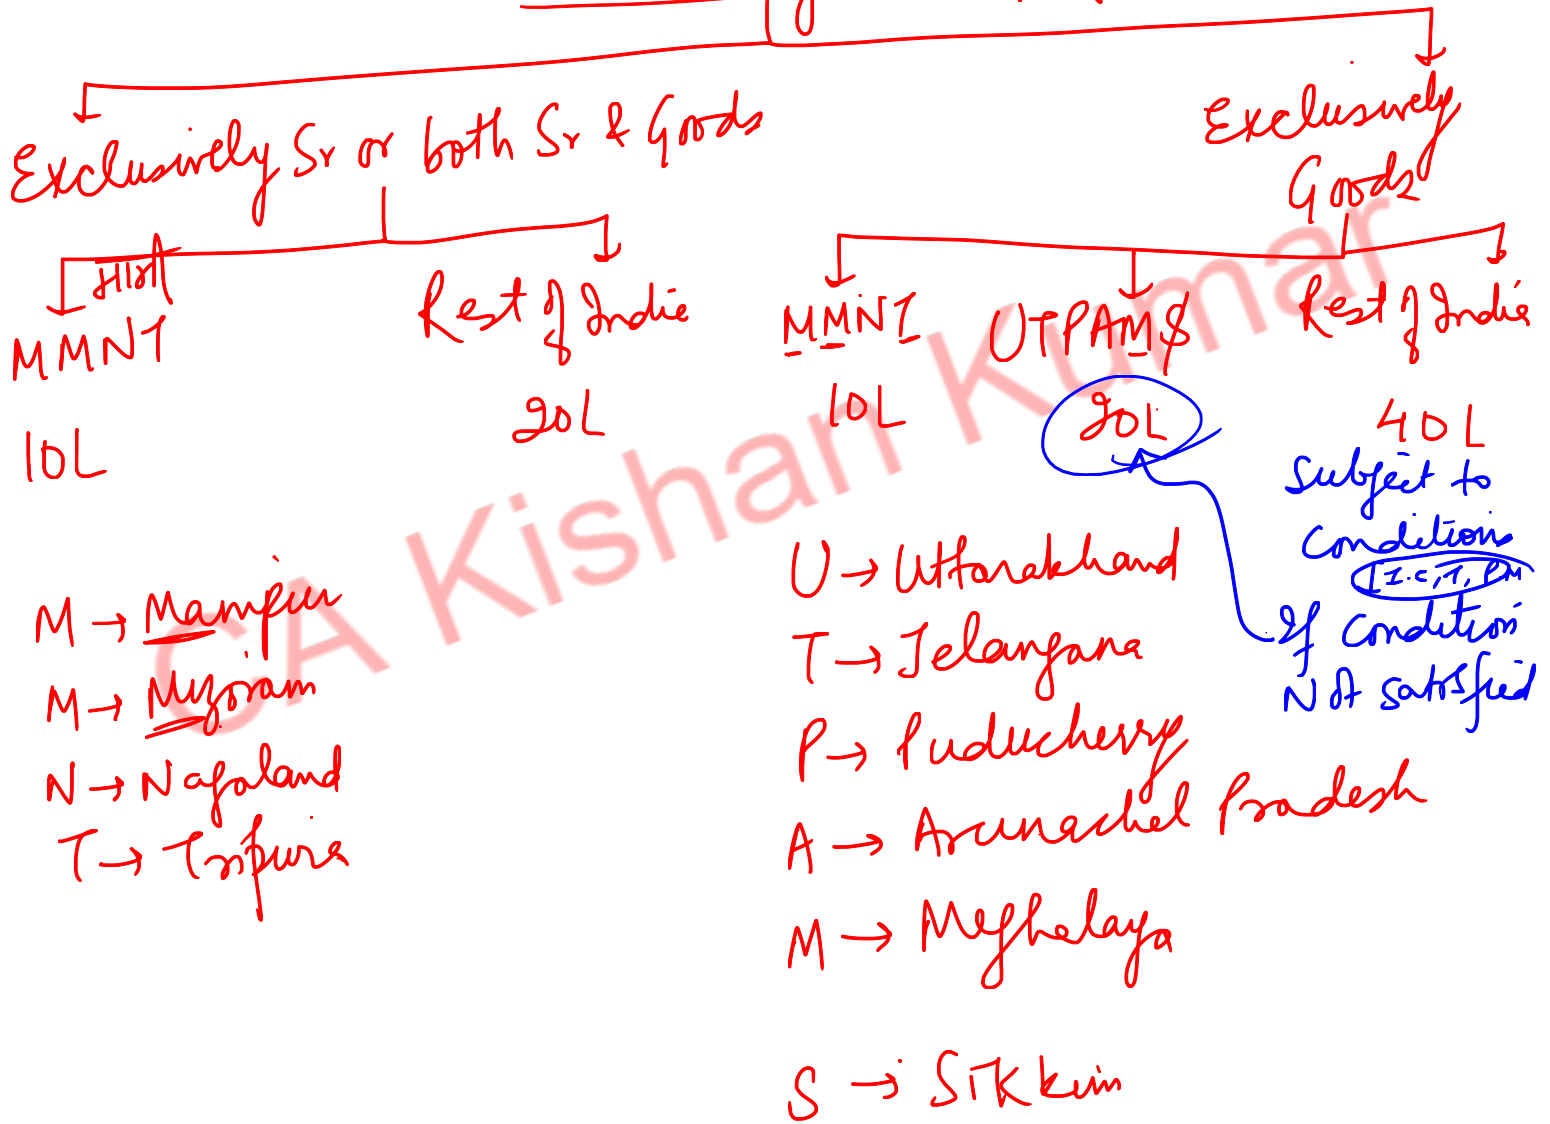 Exclusively Sr or both Sr & Goods
Exclusively
Goods
MMNT
10L
Rest of India
20L
MMNT
10L
UTPAMS
20L
Rest of India
40L
Subject to
Condition
[I.C, T, PM
If Condition
Not satisfied
M → Manipur
M → Mizoram
N → Nagaland
T → Tripura
U → Uttarakhand
T → Telangana
P → Puducherry
A → Arunachal Pradesh
M → Meghalaya
S → Sikkim
CA Kishan Kumar